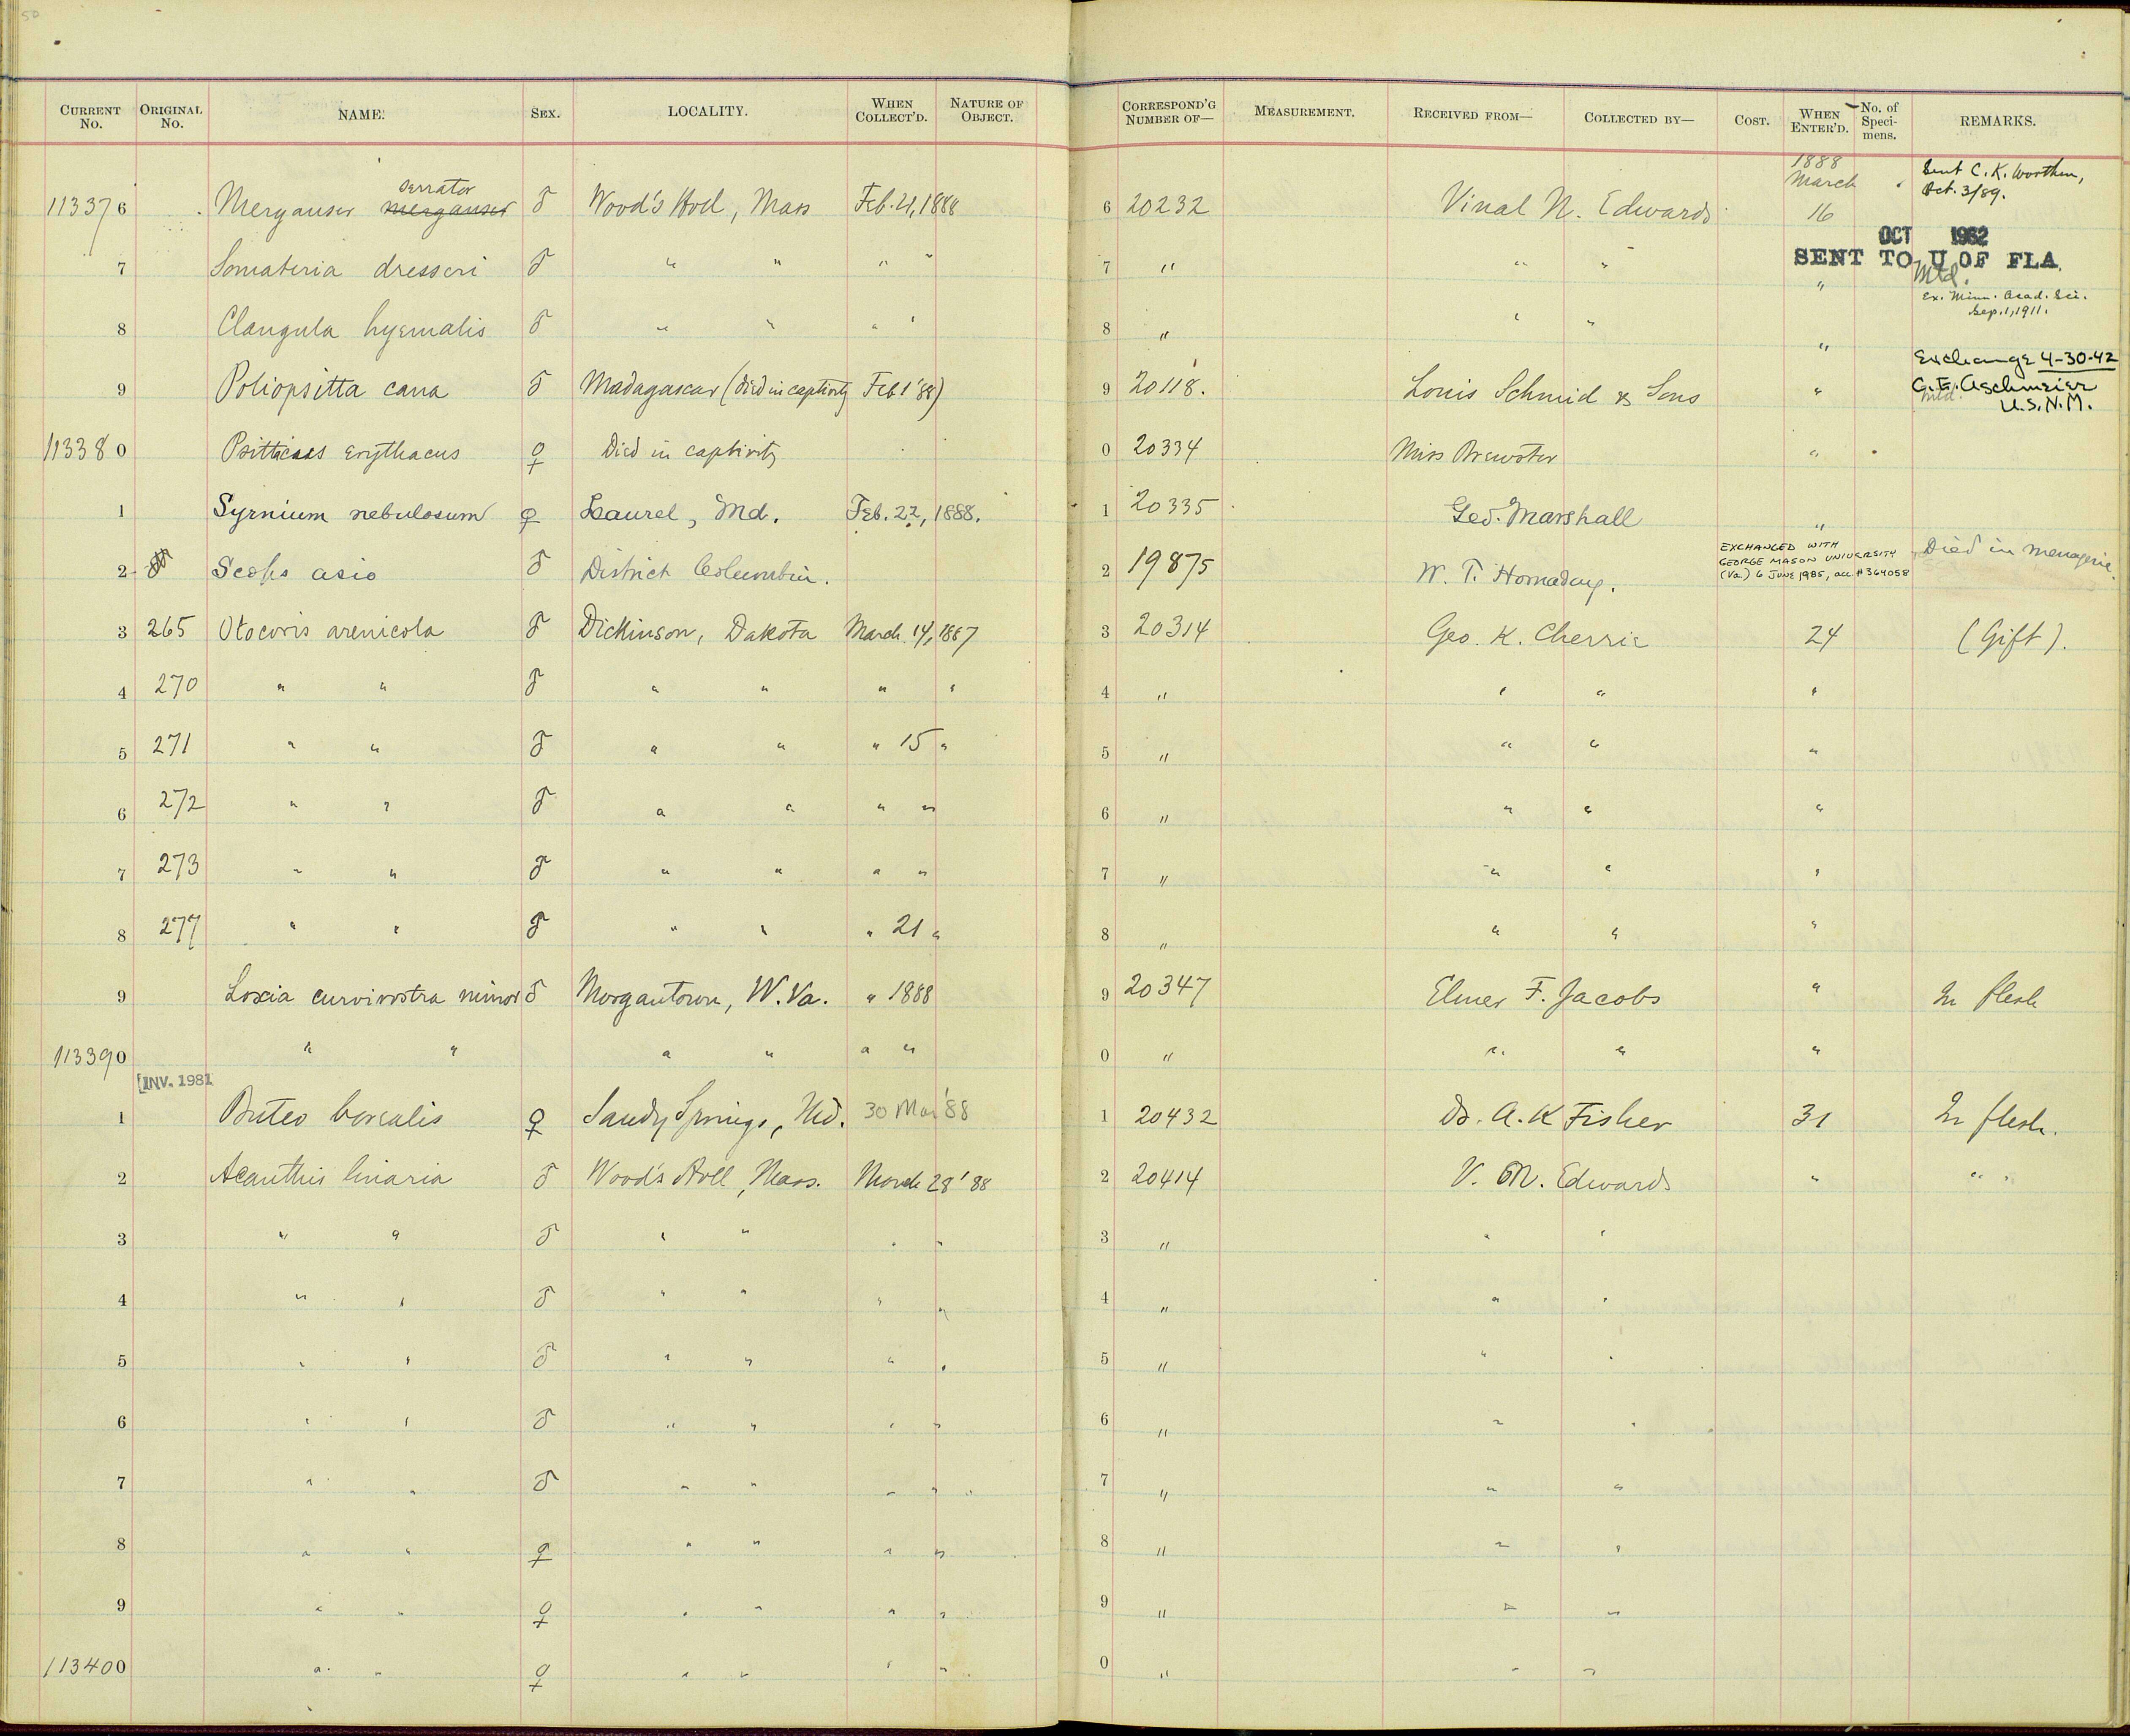 50
CURRENT No. ORIGINAL No. NAME. SEX. LOCALITY. WHEN COLLECT'D. NATURE OF OBJECT. CORRESPOND'G NUMBER OF— MEASUREMENT. RECEIVED FROM— COLLECTED BY— COST. WHEN ENTER'D. No. of Speci-mens. REMARKS.
1888 March Sent C. K. Worthen, Oct. 3/89.
serrator
113376 Merganser merganser ♂ Wood's Holl, Mass Feb. 21, 1888 6 20232 Vinal N. Edwards 16
OCT 1962
SENT TO U OF FLA.
7 Somateria dresseri ♂ " " " " 7 " " " " Mtd.
Ex. Minn. Acad. Sci.
Sep. 1, 1911.
8 Clangula hyemalis ♂ " " " " 8 " " " "
Exchange 4-30-42
9 Poliopsitta cana ♂ Madagascar (died in captivity Feb 1 '88) 9 20118. Louis Schmid & Sons " C. E. Aschmeier
mtd. U.S.N.M.
113380 Psittacus erythacus ♀ Died in captivity 0 20334 Miss Brewster "
1 Syrnium nebulosum ♀ Laurel, Md. Feb. 22, 1888. 1 20335 Geo. Marshall "
EXCHANGED WITH
GEORGE MASON UNIVERSITY
(Va.) 6 JUNE 1985, acc. # 364058
2 Scops asio ♂ District Columbia. 2 19875 W. T. Hornaday. Died in menagerie.
3 265 Otocoris arenicola ♂ Dickinson, Dakota March 14, 1887 3 20314 Geo. K. Cherrie 24 (Gift).
4 270 " " ♂ " " " " 4 " " " "
5 271 " " ♂ " " " 15 " 5 " " " "
6 272 " " ♂ " " " " 6 " " " "
7 273 " " ♂ " " " " 7 " " " "
8 277 " " ♂ " " " 21 " 8 " " " "
9 Loxia curvirostra minor ♂ Morgantown, W. Va. " 1888 9 20347 Elmer F. Jacobs " In flesh
113390 " " " " " " 0 " " " "
[INV. 1981
1 Buteo borealis ♀ Sandy Springs, Md. 30 Mar '88 1 20432 Dr. A. K Fisher 31 In flesh.
2 Acanthis linaria ♂ Wood's Holl, Mass. March 28 '88 2 20414 V. N. Edwards " " "
3 " " ♂ " " " " 3 " " "
4 " " ♂ " " " " 4 " " "
5 " " ♂ " " " " 5 " " "
6 " " ♂ " " " " 6 " " "
7 " " ♂ " " " " 7 " " "
8 " " ♀ " " " " 8 " " "
9 " " ♀ " " " " 9 " " "
113400 " " ♀ " " " " 0 " " "